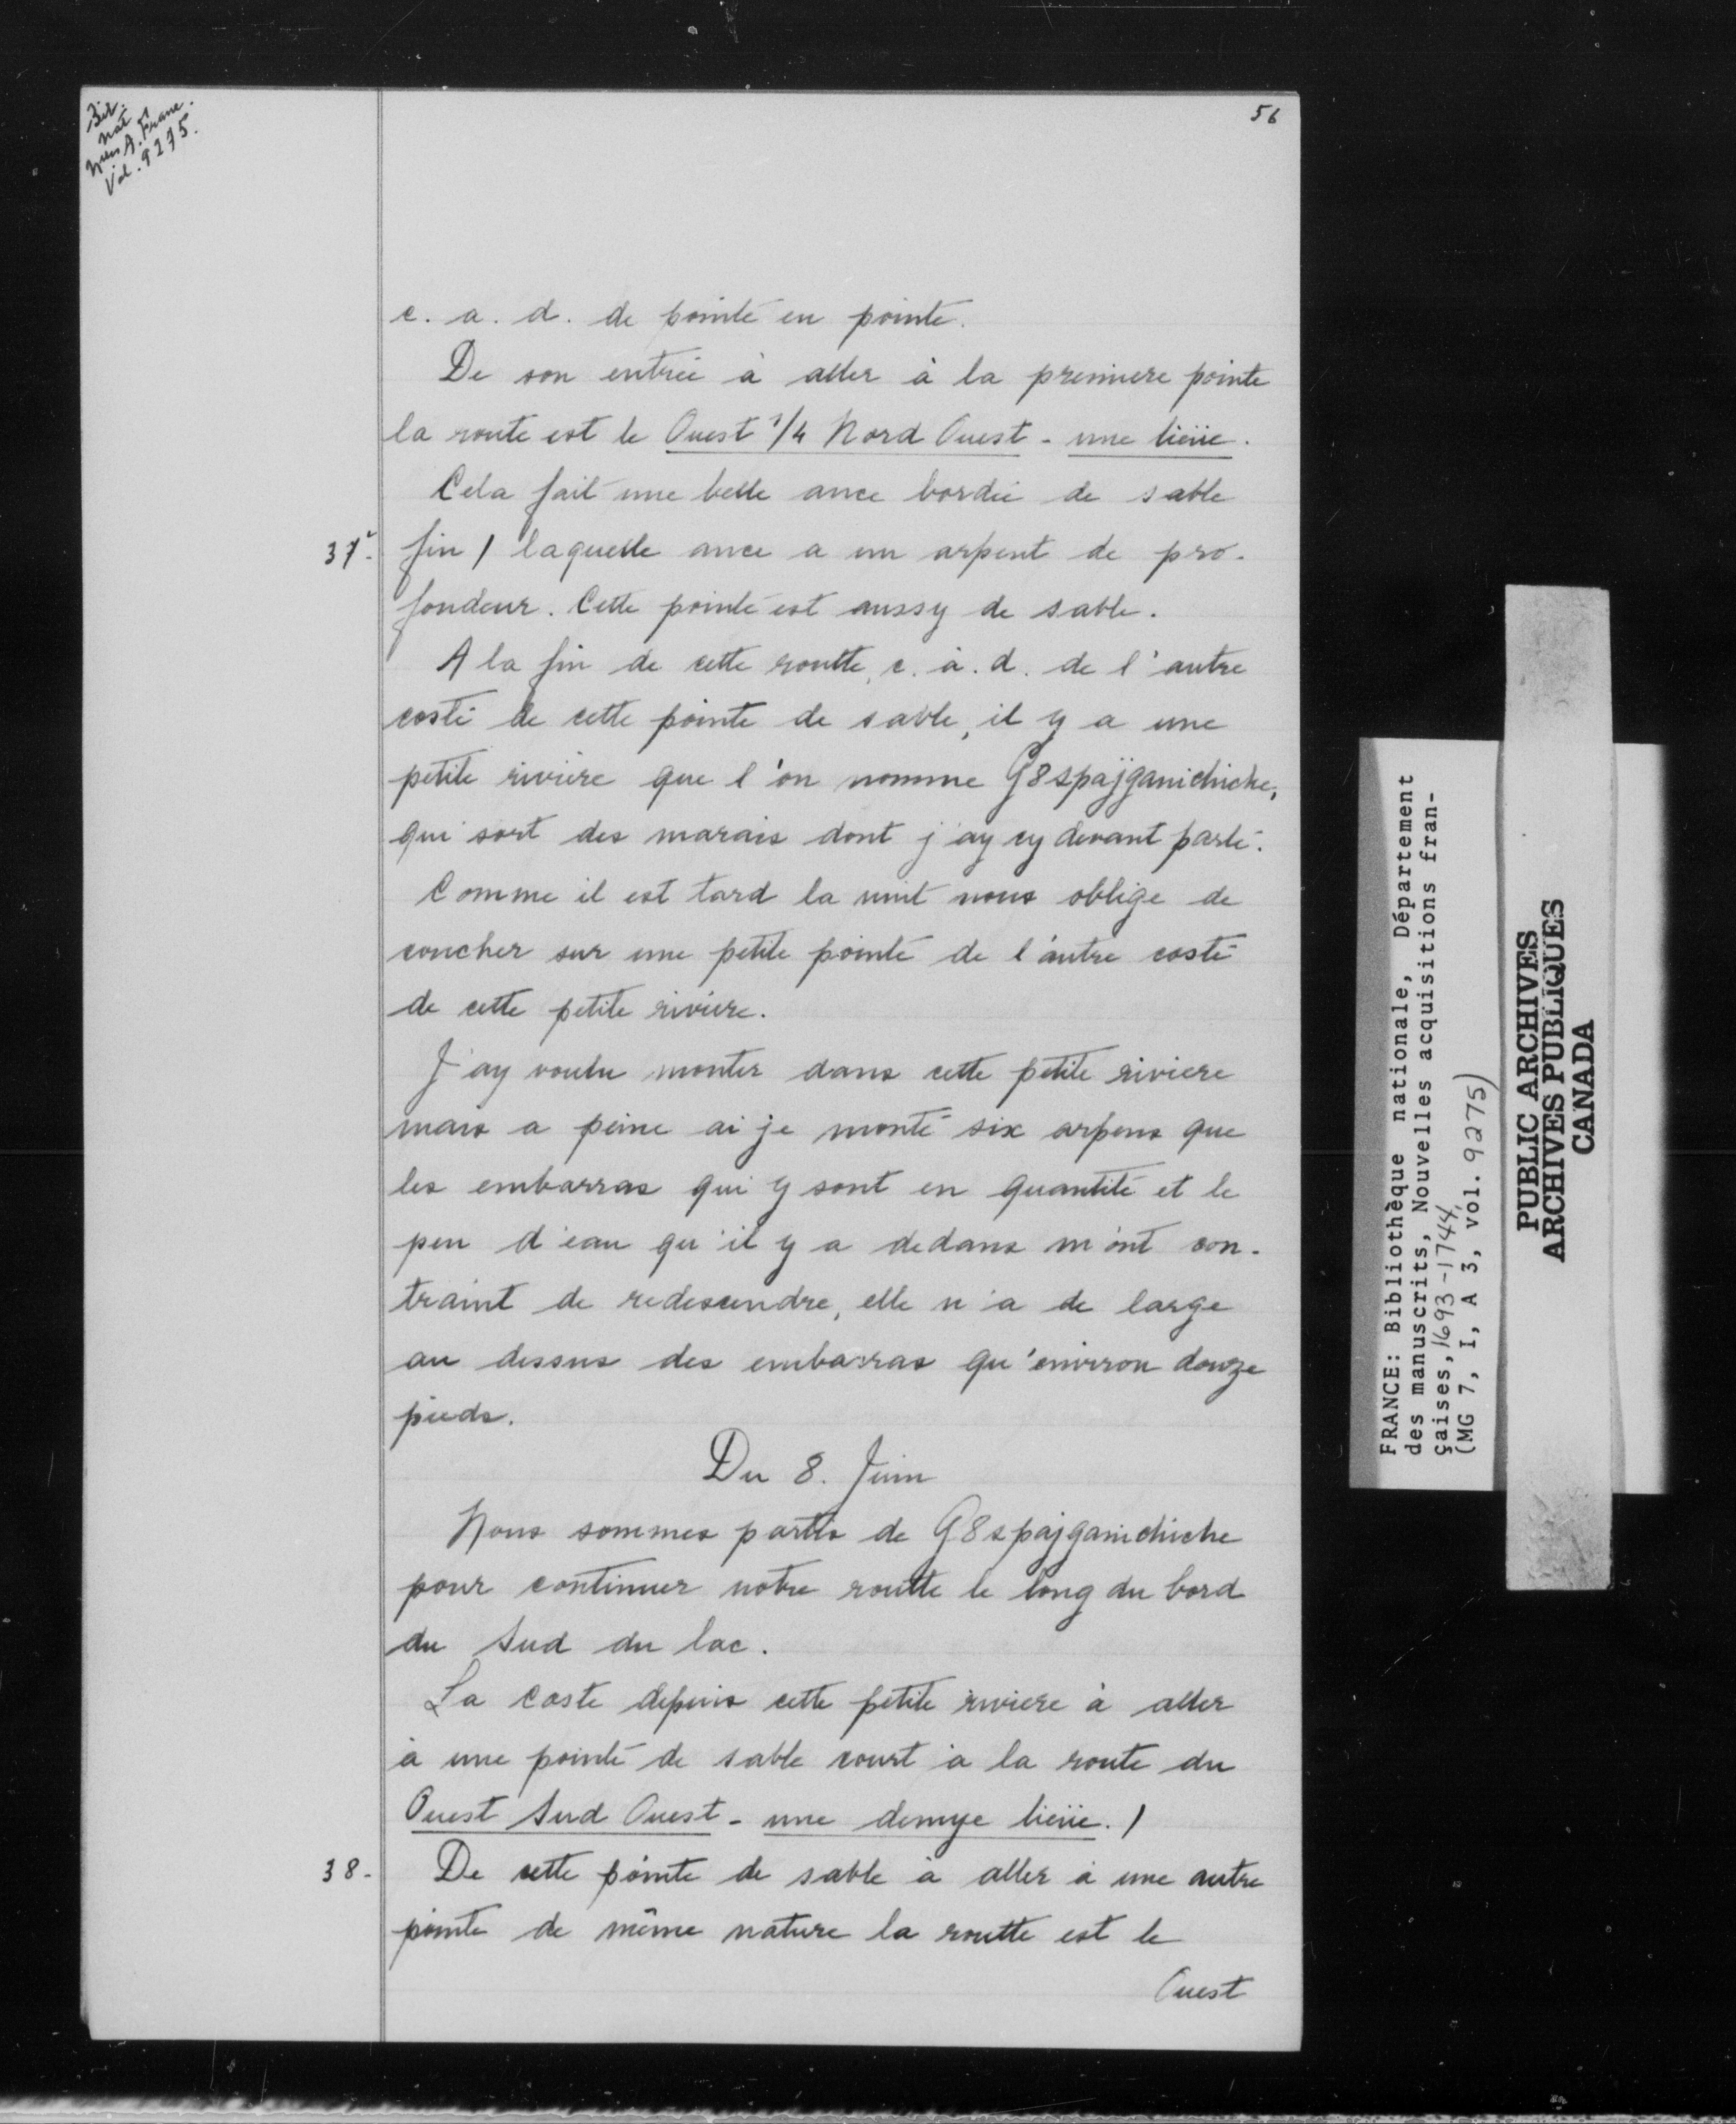 Bib.
nat
A. Franc.
Vol. 9275.
56
c. a. d. de pointe en pointe.
De son entrée à aller à la premiere pointe
la route est le Ouest 1/4 Nord Ouest - une lieüe.
Cela fait une belle ance bordée de sable
37- fin / laquelle ance a un arpent de pro-
fondeur. Cette pointe est aussy de sable.
A la fin de cette routte, c. à. d. de l'autre
costé de cette pointe de sable, il y a une
petite riviere que l'on nomme G8spajganichiche,
qui sort des marais dont j'ay cy devant parlé.
Comme il est tard la nuit nous oblige de
coucher sur une petite pointe de l'autre costé
de cette petite riviere.
J'ay voulu monter dans cette petite riviere
mais a peine ai je monté six arpens que
les embarras qui y sont en quantité et le
peu d'eau qu'il y a dedans m'ont con-
traint de redescendre, elle n'a de large
au dessus des embarras qu'environ douze
pieds.
Du 8. Juin
Nous sommes partis de G8spajganichiche
pour continuer notre routte le long du bord
du Sud du lac.
La coste depuis cette petite riviere à aller
à une pointe de sable court à la route du
Ouest Sud Ouest - une demye lieüe. /
38- De cette pointe de sable à aller à une autre
pointe de même nature la routte est le
Ouest
FRANCE: Bibliothèque nationale, Département
des manuscrits, Nouvelles acquisitions fran-
çaises, 1693-1744,
(MG 7, I, A 3, vol. 9275)
PUBLIC ARCHIVES
ARCHIVES PUBLIQUES
CANADA